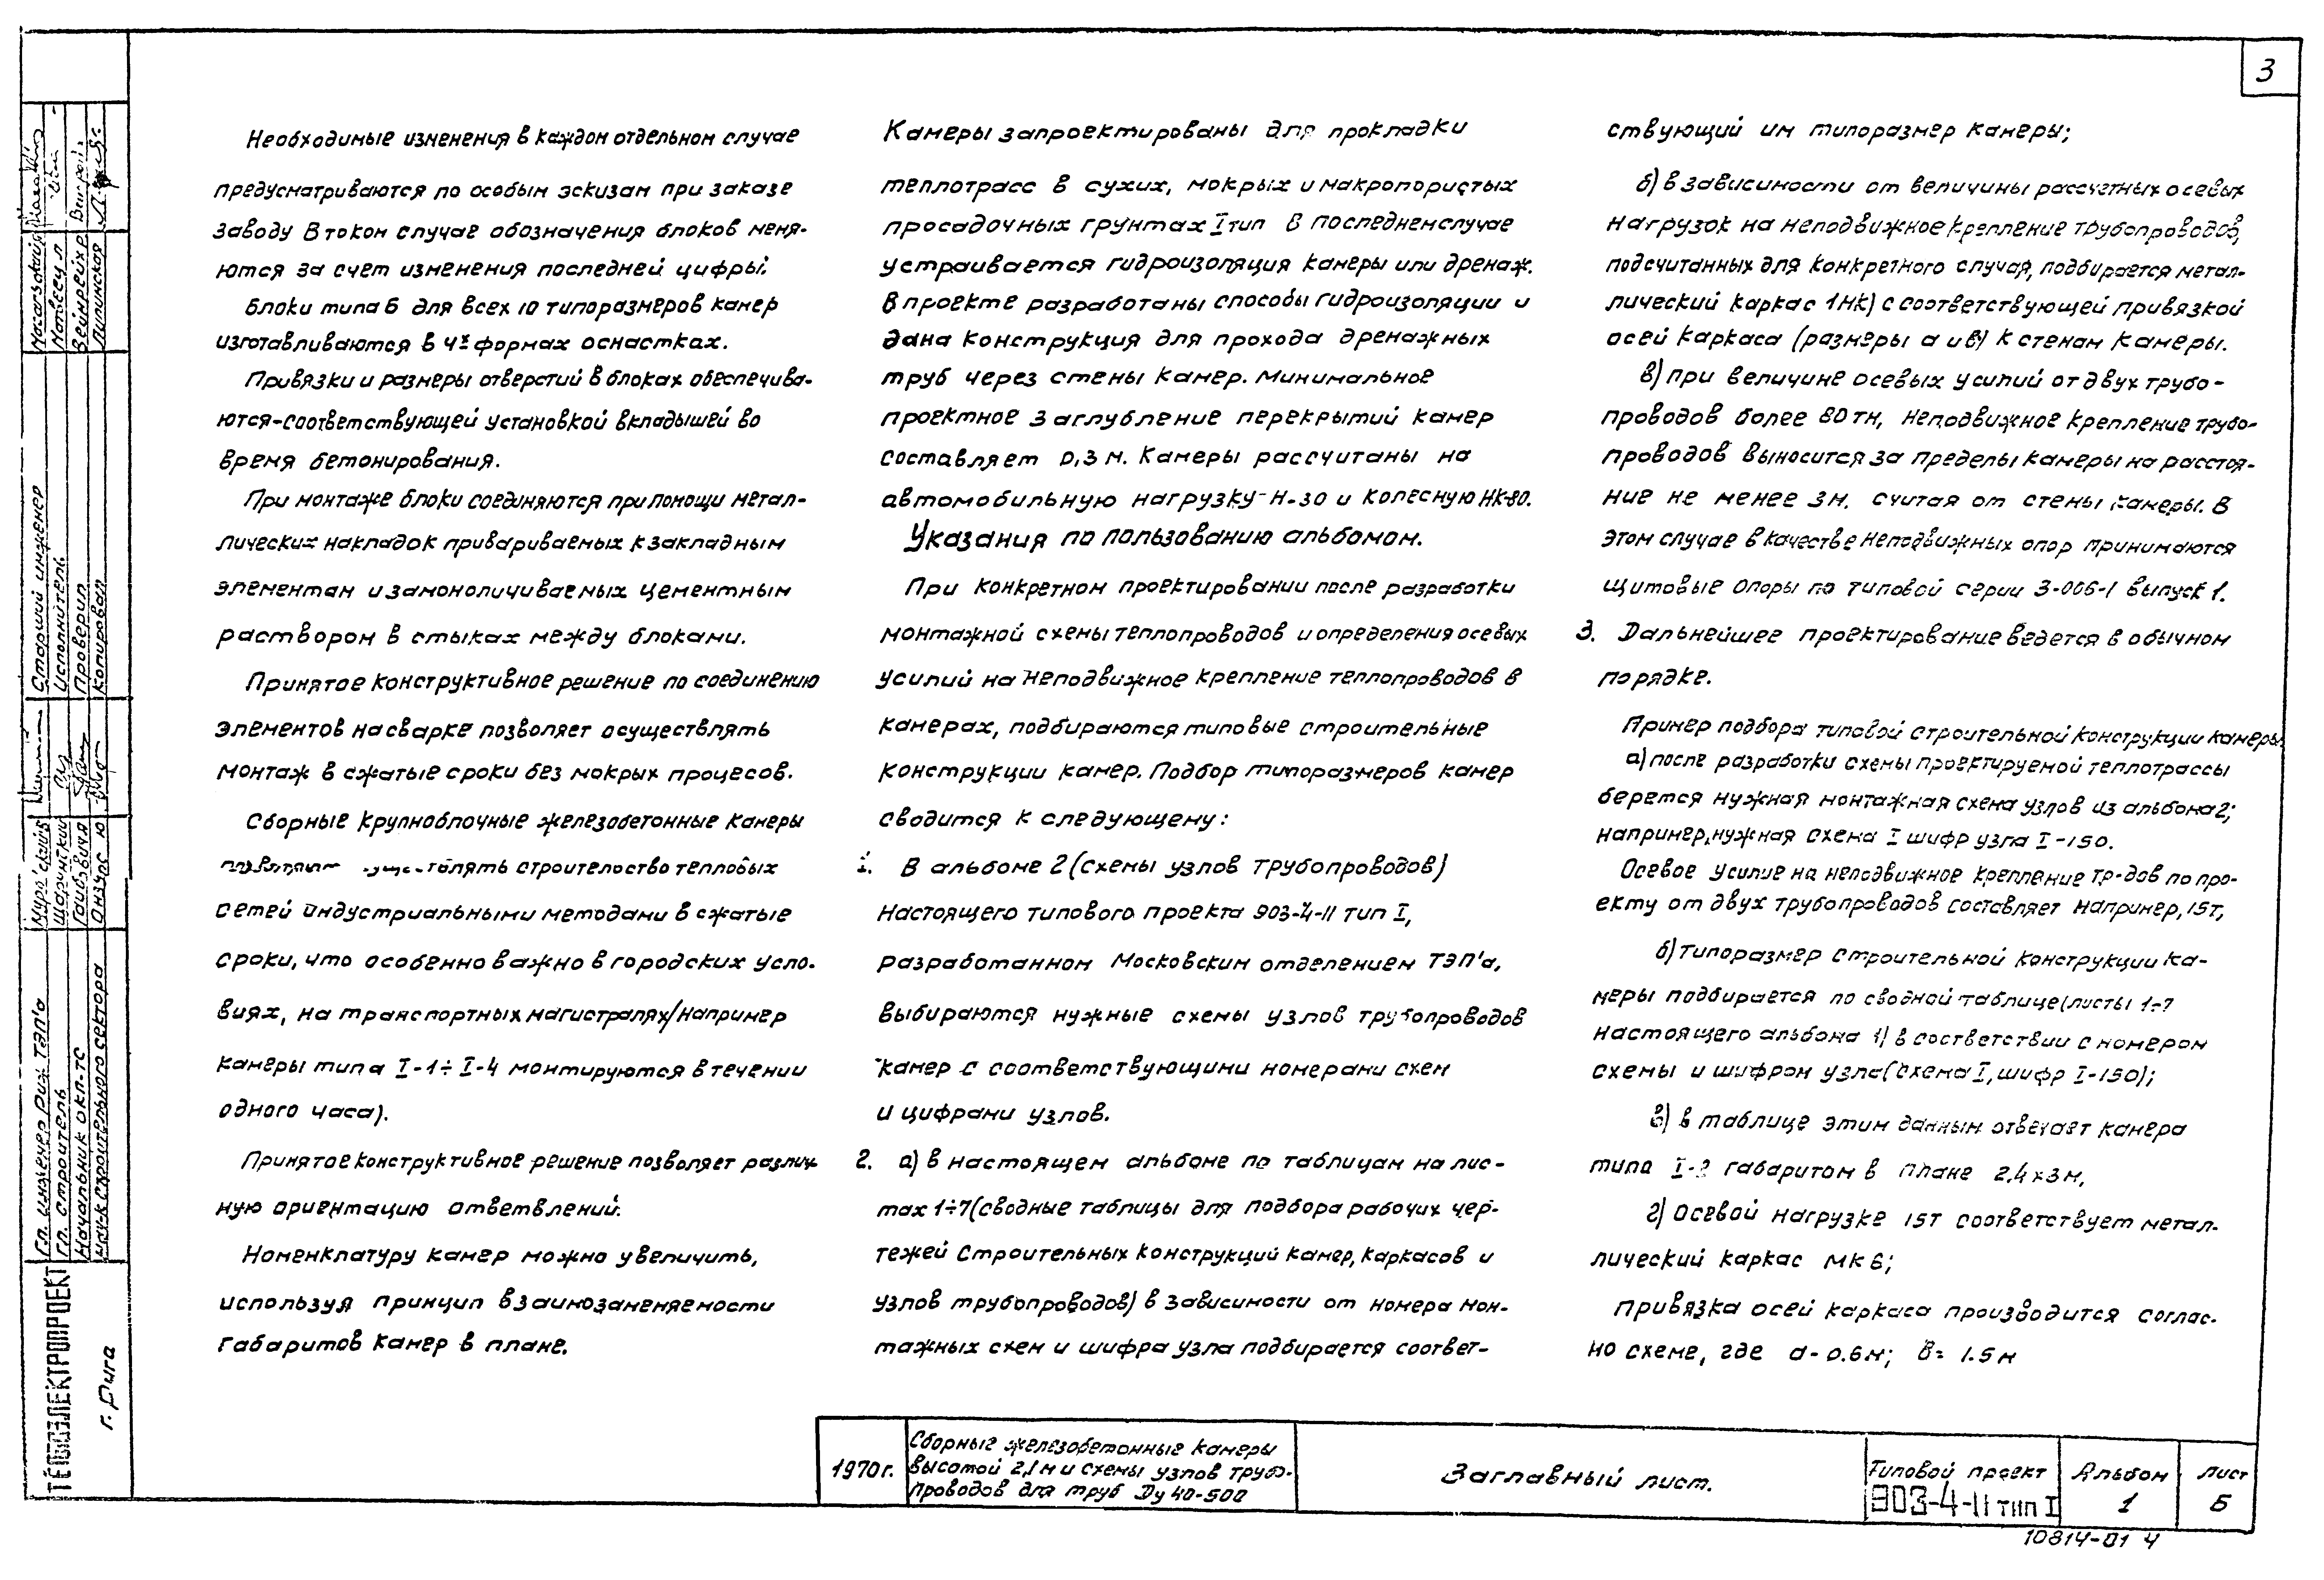 3
Необходимые изменения в каждом отдельном случае
предусматриваются по особым эскизам при заказе
заводу В таком случае обозначения блоков меня-
ются за счет изменения последней цифры.
Блоки типа Б для всех 10 типоразмеров камер
изготавливаются в 4х формах оснастках.
Привязки и размеры отверстий в блоках обеспечива-
ются-соответствующей установкой вкладышей во
время бетонирования.
При монтаже блоки соединяются при помощи метал-
лических накладок привариваемых к закладным
элементам и замоноличиваемых цементным
раствором в стыках между блоками.
Принятое конструктивное решение по соединению
элементов на сварке позволяет осуществлять
монтаж в сжатые сроки без мокрых процесов.
Сборные крупноблочные железобетонные камеры
строительство тепловых
сетей индустриальными методами в сжатые
сроки, что особенно важно в городских усло-
виях, на транспортных магистралях/например
камеры типа I-1÷I-4 монтируются в течении
одного часа).
Принятое конструктивное решение позволяет различ-
ную ориентацию ответвлений.
Номенклатуру камер можно увеличить,
используя принцип взаимозаменяемости
габаритов камер в плане.
Камеры запроектированы для прокладки
теплотрасс в сухих, мокрых и макропористых
просадочных грунтах I тип В последнем случае
устраивается гидроизоляция камеры или дренаж.
В проекте разработаны способы гидроизоляции и
дана конструкция для прохода дренажных
труб через стены камер. Минимальное
проектное заглубление перекрытий камер
составляет 0,3 м. Камеры рассчитаны на
автомобильную нагрузку-Н-30 и колесную НК-80.
Указания по пользованию альбомом.
При конкретном проектировании после разработки
монтажной схемы теплопроводов и определения осевых
усилий на неподвижное крепление теплопроводов в
камерах, подбираются типовые строительные
конструкции камер. Подбор типоразмеров камер
сводится к следующему:
1. В альбоме 2 (схемы узлов трубопроводов)
настоящего типового проекта 903-4-11 тип I,
разработанном Московским отделением ТЭП'а,
выбираются нужные схемы узлов трубопроводов
камер с соответствующими номерами схем
и цифрами узлов.
2. а) в настоящем альбоме по таблицам на лис-
тах 1÷7 (сводные таблицы для подбора рабочих чер-
тежей строительных конструкций камер, каркасов и
узлов трубопроводов) в зависимости от номера мон-
тажных схем и шифра узла подбирается соответ-
ствующий им типоразмер камеры;
б) в зависимости от величины рассчетных осевых
нагрузок на неподвижное крепление трубопроводов,
подсчитанных для конкретного случая, подбирается метал-
лический каркас 1МК) с соответствующей привязкой
осей каркаса (размеры а и в) к стенам камеры.
в) при величине осевых усилий от двух трубо-
проводов более 80 тн, неподвижное крепление трубо-
проводов выносится за пределы камеры на расстоя-
ние не менее 3 м. считая от стены камеры. В
этом случае в качестве неподвижных опор принимаются
щитовые опоры по типовой серии 3-006-1 выпуск 1.
3. Дальнейшее проектирование ведется в обычном
порядке.
Пример подбора типовой строительной конструкции камеры.
а) после разработки схемы проектируемой теплотрассы
берется нужная монтажная схема узлов из альбома 2;
например, нужная схема I шифр узла I-150.
Осевое усилие на неподвижное крепление тр-дов по про-
екту от двух трубопроводов составляет например, 15т,
б) типоразмер строительной конструкции ка-
меры подбирается по сводной таблице (листы 1÷7
настоящего альбома 1) в соответствии с номером
схемы и шифром узла (схема I, шифр I-150);
в) в таблице этим данным отвечает камера
типа габаритом в плане 2,4х3м,
г) осевой нагрузке 15т соответствует метал-
лический каркас МК6;
привязка осей каркаса производится соглас-
но схеме, где а-0.6м; в= 1.5м
ТЕПЛОЭЛЕКТРОПРОЕКТ
г. Рига
Гл. инженер Риж. ТЭП'а
Гл. строитель
Начальник ОКП-ТС
Нач-к строительного сектора
Старший инженер
Исполнитель
Проверил
Копировал
Матвеец Л
Вейнрейх Р
Липинская
1970г.
Сборные железобетонные камеры
высотой 2,1м и схемы узлов трубо-
проводов для труб Ду 40-500
Заглавный лист.
Типовой проект
903-4-11 тип I
Альбом
1
Лист
Б
10814-01 4